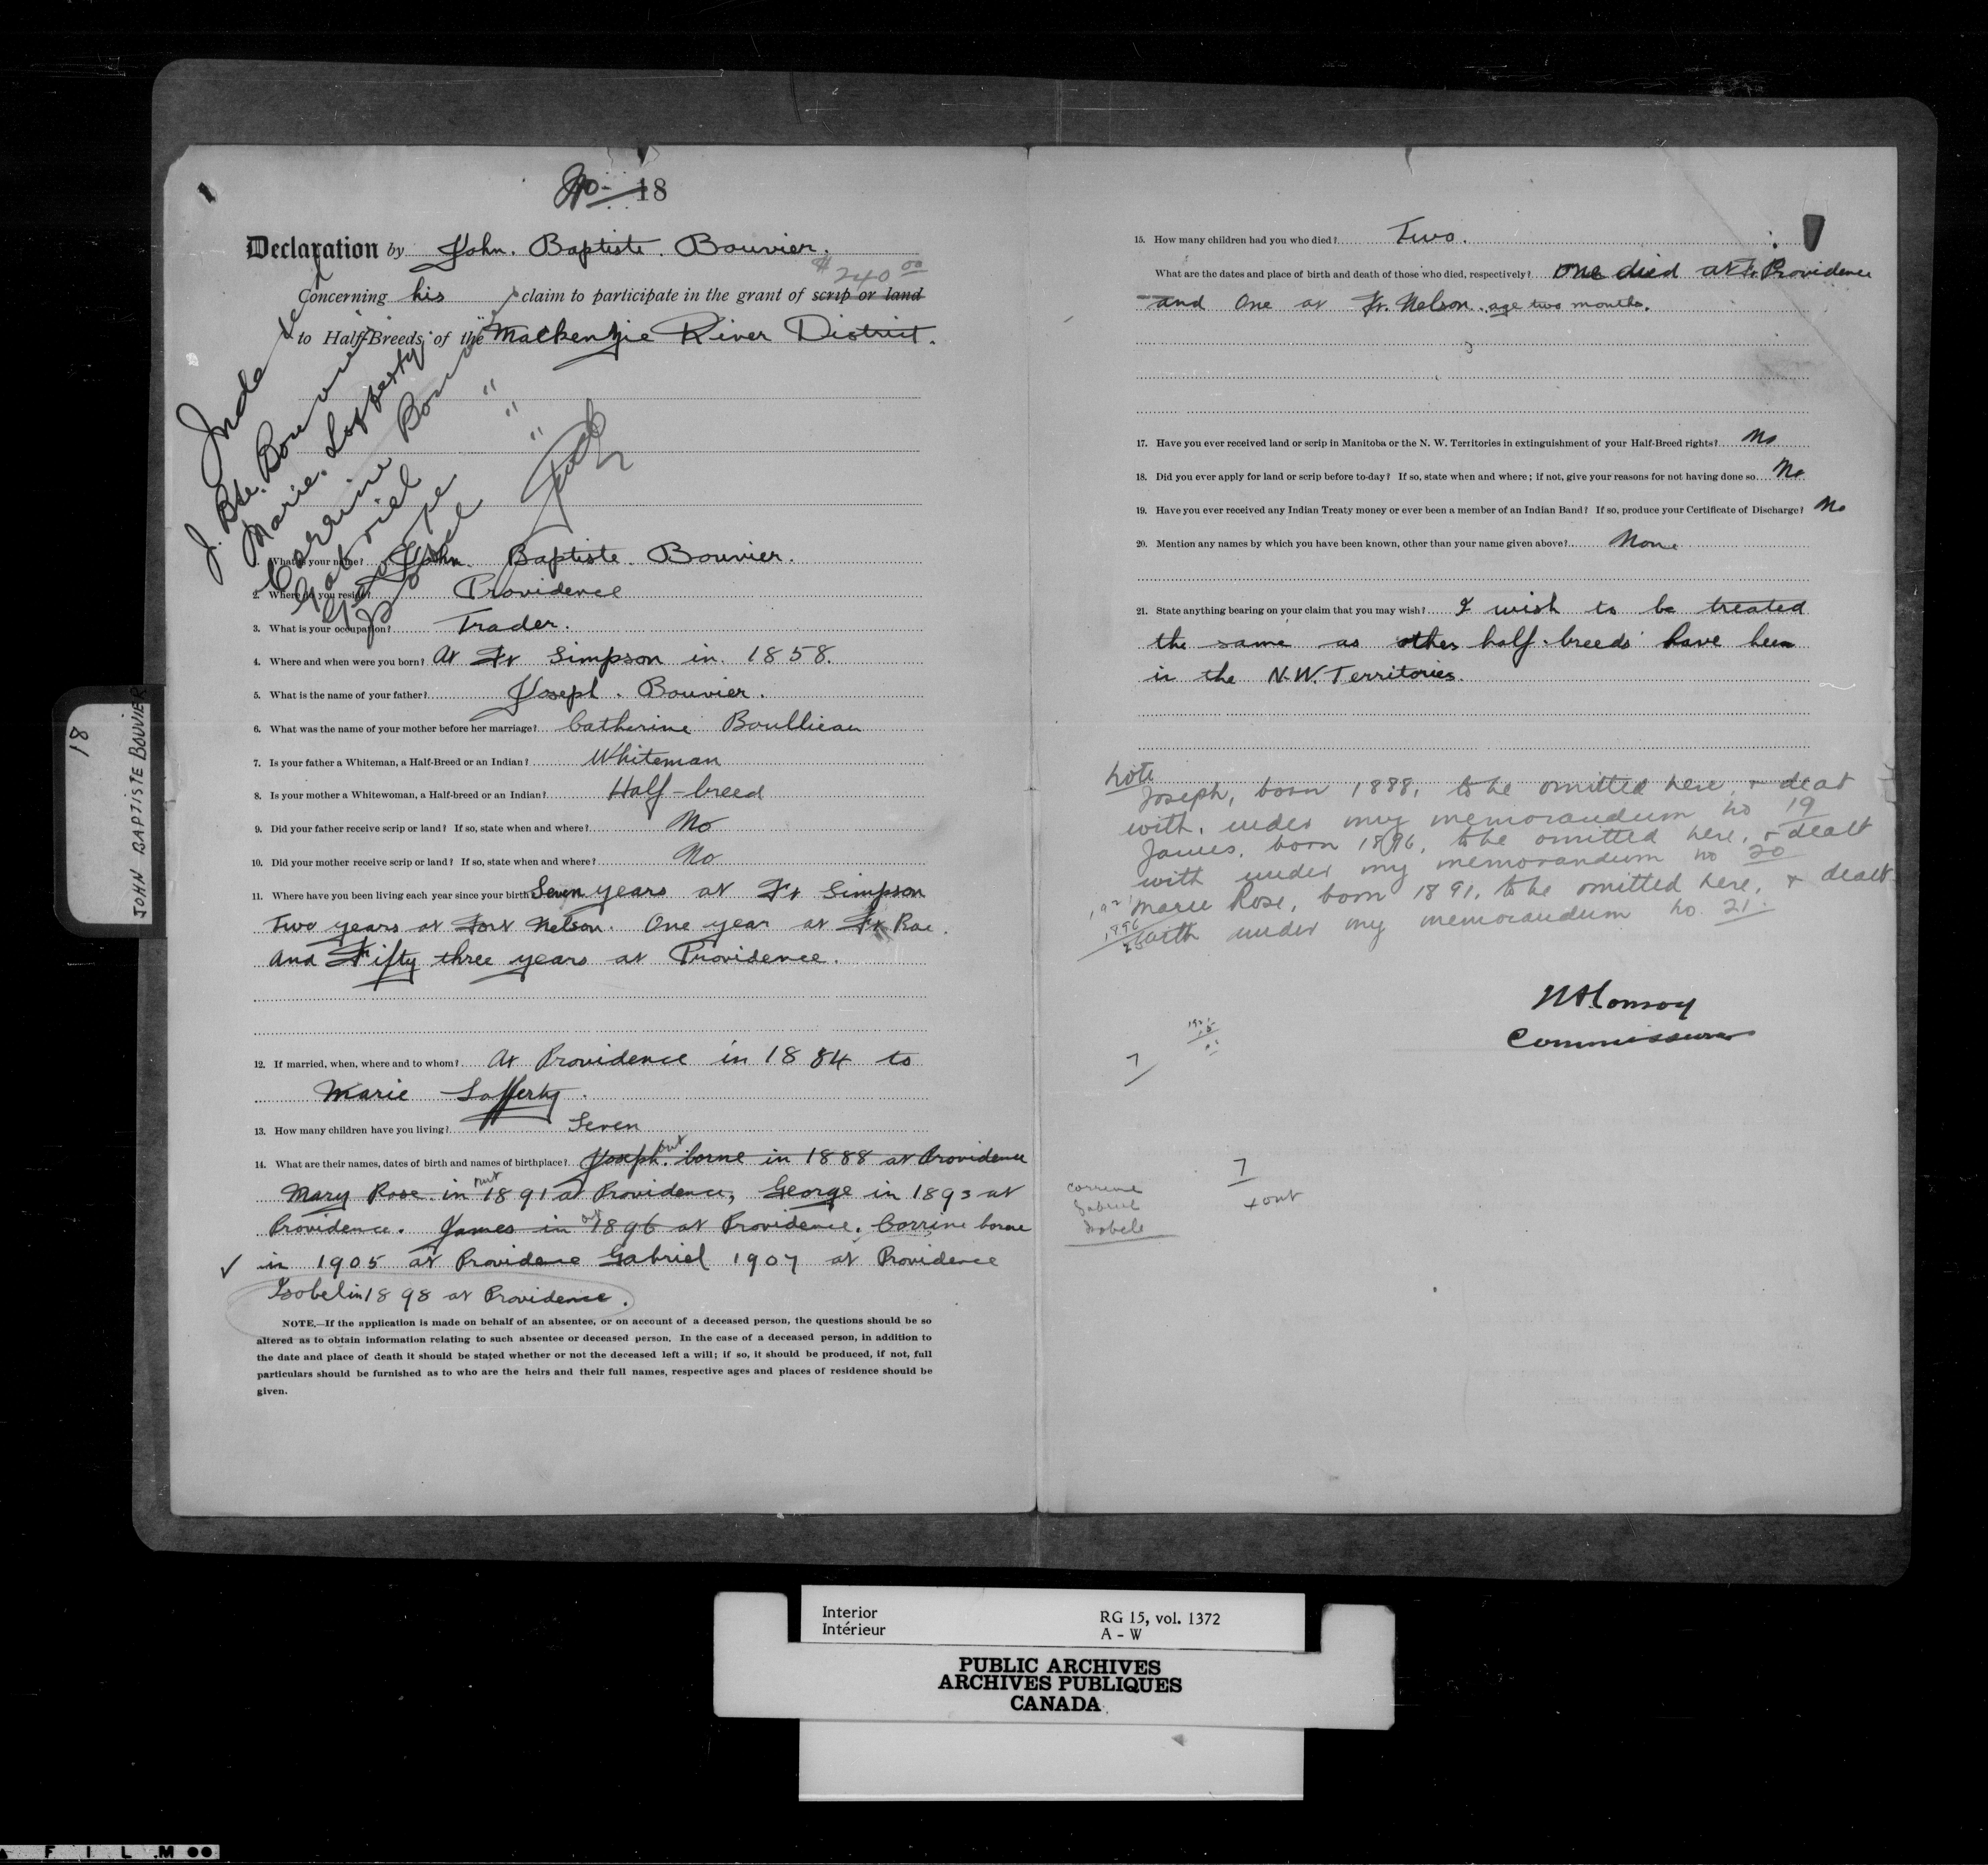 No. 18
Declaration by John. Baptiste. Bouvier.
$240 00
Concerning his claim to participate in the grant of scrip or land
to Half-Breeds of the Mackenzie River District.
Indexed
J. Bte. Bouvier
Marie. Lafferty
Corrine Bouvier
Gabriel "
George "
Isobel "
1. What is your name? John. Baptiste. Bouvier.
2. Where do you reside? Providence
3. What is your occupation? Trader.
4. Where and when were you born? At Ft Simpson in. 1858.
5. What is the name of your father? Joseph. Bouvier.
6. What was the name of your mother before her marriage? Catherine Boullieau
7. Is your father a Whiteman, a Half-Breed or an Indian? Whiteman
8. Is your mother a Whitewoman, a Half-breed or an Indian? Half-breed
9. Did your father receive scrip or land? If so, state when and where? No
10. Did your mother receive scrip or land? If so, state when and where? No
11. Where have you been living each year since your birth Seven years at Ft Simpson
Two years at Fort Nelson. One year at Ft Rae.
and Fifty three years at Providence.
12. If married, when, where and to whom? At Providence in 1884 to
Marie Lafferty.
13. How many children have you living? Seven
14. What are their names, dates of birth and names of birthplace? Joseph. out borne in 1888 at Providence
Mary Rose in out 1891 at Providence, George in 1893 at
Providence. James in out 1896 at Providence. Corrine borne
✓ in 1905 at Providence Gabriel 1907 at Providence
Isobel in 1898 at Providence.
NOTE.—If the application is made on behalf of an absentee, or on account of a deceased person, the questions should be so
altered as to obtain information relating to such absentee or deceased person. In the case of a deceased person, in addition to
the date and place of death it should be stated whether or not the deceased left a will; if so, it should be produced, if not, full
particulars should be furnished as to who are the heirs and their full names, respective ages and places of residence should be
given.
18
JOHN BAPTISTE BOUVIER
15. How many children had you who died? Two.
What are the dates and place of birth and death of those who died, respectively? One died at Ft. Providence
and One at Ft. Nelson. age two months.
17. Have you ever received land or scrip in Manitoba or the N. W. Territories in extinguishment of your Half-Breed rights? No
18. Did you ever apply for land or scrip before to-day? If so, state when and where; if not, give your reasons for not having done so No
19. Have you ever received any Indian Treaty money or ever been a member of an Indian Band? If so, produce your Certificate of Discharge? No
20. Mention any names by which you have been known, other than your name given above? None
21. State anything bearing on your claim that you may wish? I wish to be treated
the same as other half-breeds have been
in the N.W. Territories.
Note
Joseph, born 1888, to be omitted here, & dealt
with, under my memorandum no 19
James, born 1896, to be omitted here, & dealt
with under my memorandum no 20
Marie Rose, born 1891, to be omitted here, & dealt
with under my memorandum no. 21.
1921
1896
25
H A Conroy
Commissioner
7
7
4 out
Corrine
Gabriel
Isobele
Interior
Intérieur
RG 15, vol. 1372
A - W
PUBLIC ARCHIVES
ARCHIVES PUBLIQUES
CANADA
FILM